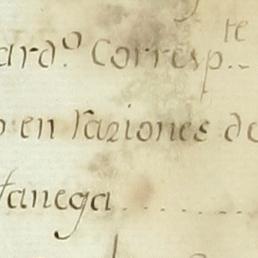 ard.º Corresp.te
en raziones de
fanega